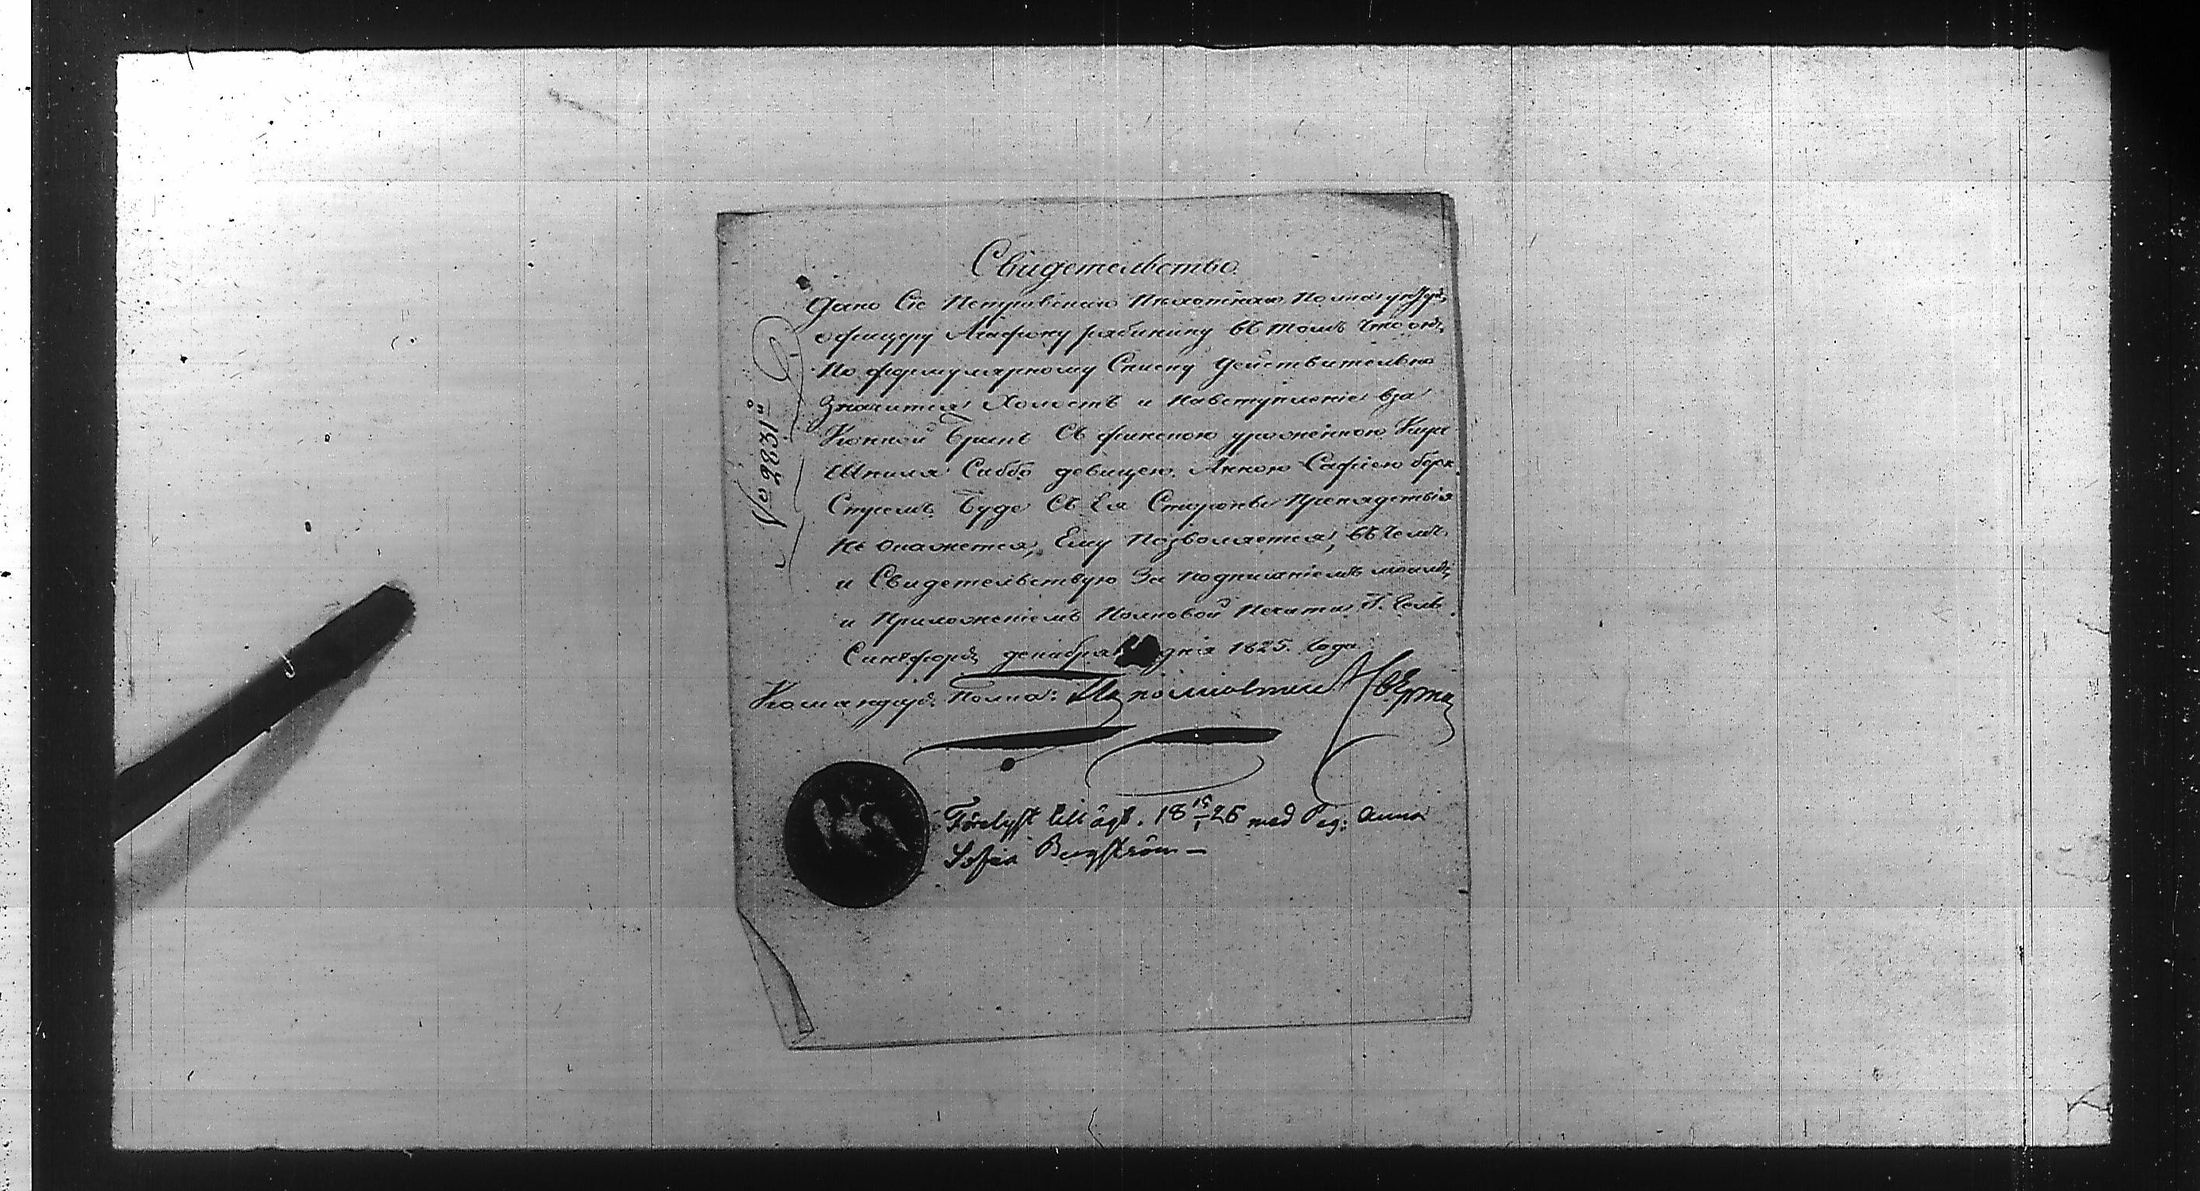 Свидетельство
Дано Сie Петровскаго Пехотнаго Полка унтеръ
офицеру Агафону рябинину въ томъ что онъ
По формулярному Списку действительно
Значится Холостъ и Навступленiе вза
Конной бракъ Съ финскою уроженкою Кир
Шпиля Сиббо девицею Анною Сафiею берк
Стремъ буде Съ Ея Стороны Препядствiя
не Окажется, Ему Позволяется, въ чемъ
и Свидетельствую За подписанiемъ моимъ
и Приложенiемъ Полковой Печати Г. Гель
Сингфорсъ декабря дня 1825. Года
Командиръ Полка: Подполковникъ
№ 2831й
Förelyst till ägt. 18 15/1 26 med Pig: Anna
Sofia Bergström —